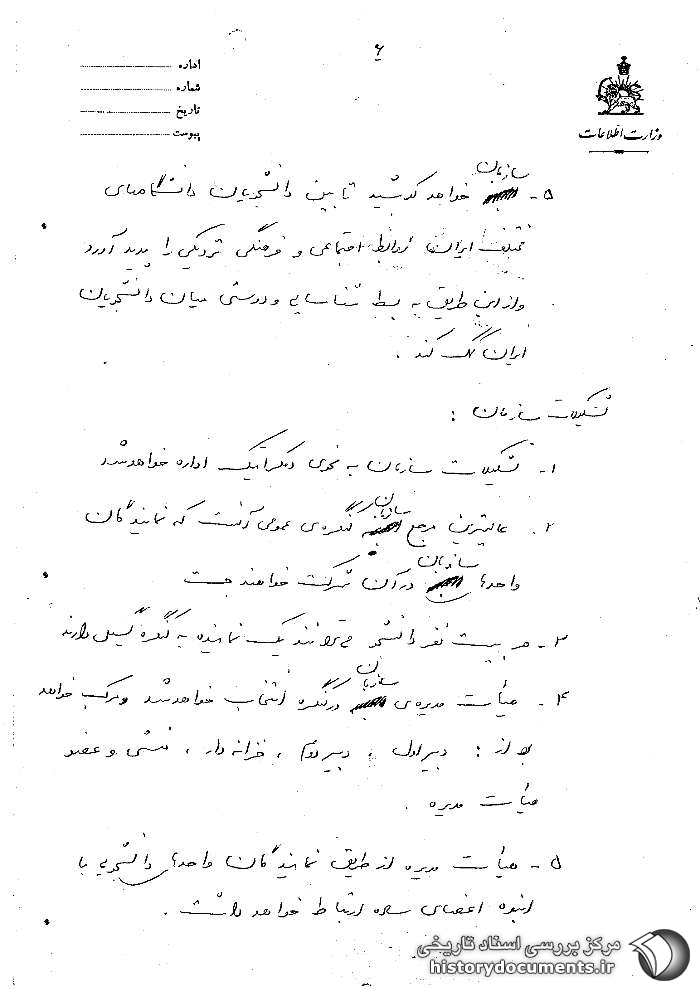 ۶
اداره
شماره
تاریخ
پیوست
وزارت اطلاعات
سازمان
۵- خواهد کوشید تا بین دانشجویان دانشگاههای
مختلف ایران روابط اجتماعی و فرهنگی نزدیکی را پدید آورد
و از این طریق به بسط شناسایی و دوستی میان دانشجویان
ایران کمک کند .
تشکیلات سازمان :
۱- تشکیلات سازمان به نحوی دمکراتیک اداره خواهد شد
سازمان
۲- عالیترین مرجع کنگره‌ی عمومی آنست که نمایندگان
سازمان
واحدهای در آن شرکت خواهند جست
۳- هر بیست نفر دانشجو می‌توانند یک نماینده به کنگره گسیل دارند
سازمان
۴- هیأت مدیره‌ی در کنگره انتخاب خواهد شد و مرکب خواهد
بود از : دبیر اول ، دبیر دوم ، خزانه دار ، منشی و عضو
هیأت مدیره .
۵- هیأت مدیره از طریق نمایندگان واحدهای دانشجویی با
انبوه اعضای ساده ارتباط خواهد داشت .
مرکز بررسی اسناد تاریخی
historydocuments.ir